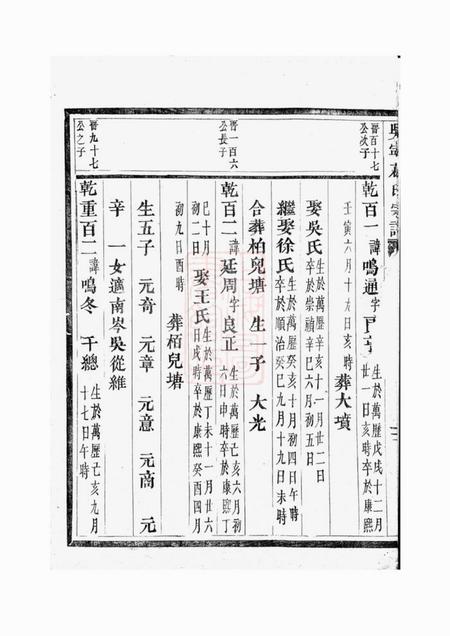 晉百十七
公次子
乾百一 諱鳴通字
生於萬歷戊戌十二月
廿一日亥時卒於康熙
壬寅六月十九日亥時葬大墳
娶吳氏 生於萬歷辛亥十一月廿二日
卒於崇禎辛巳六月初五日
繼娶徐氏 生於萬歷癸亥十月初四日午時
卒於順治癸巳九月十九日未時
合葬柏兒塘 生一子 大光
晉一百六
公長子
乾百二 諱延周字良正
生於萬歷己亥六月初
六日申時卒於康熙丁
巳十月初二日 娶王氏 生於萬歷丁未十一月廿六
日戌時卒於康熙癸酉四月
初九日酉時 葬栢兒塘
生五子 元奇 元章 元意 元商 元
辛 一女適南岑吳從維
晉九十七
公之子
乾重百二 諱鳴冬 千總
生於萬歷己亥九月
十七日午時